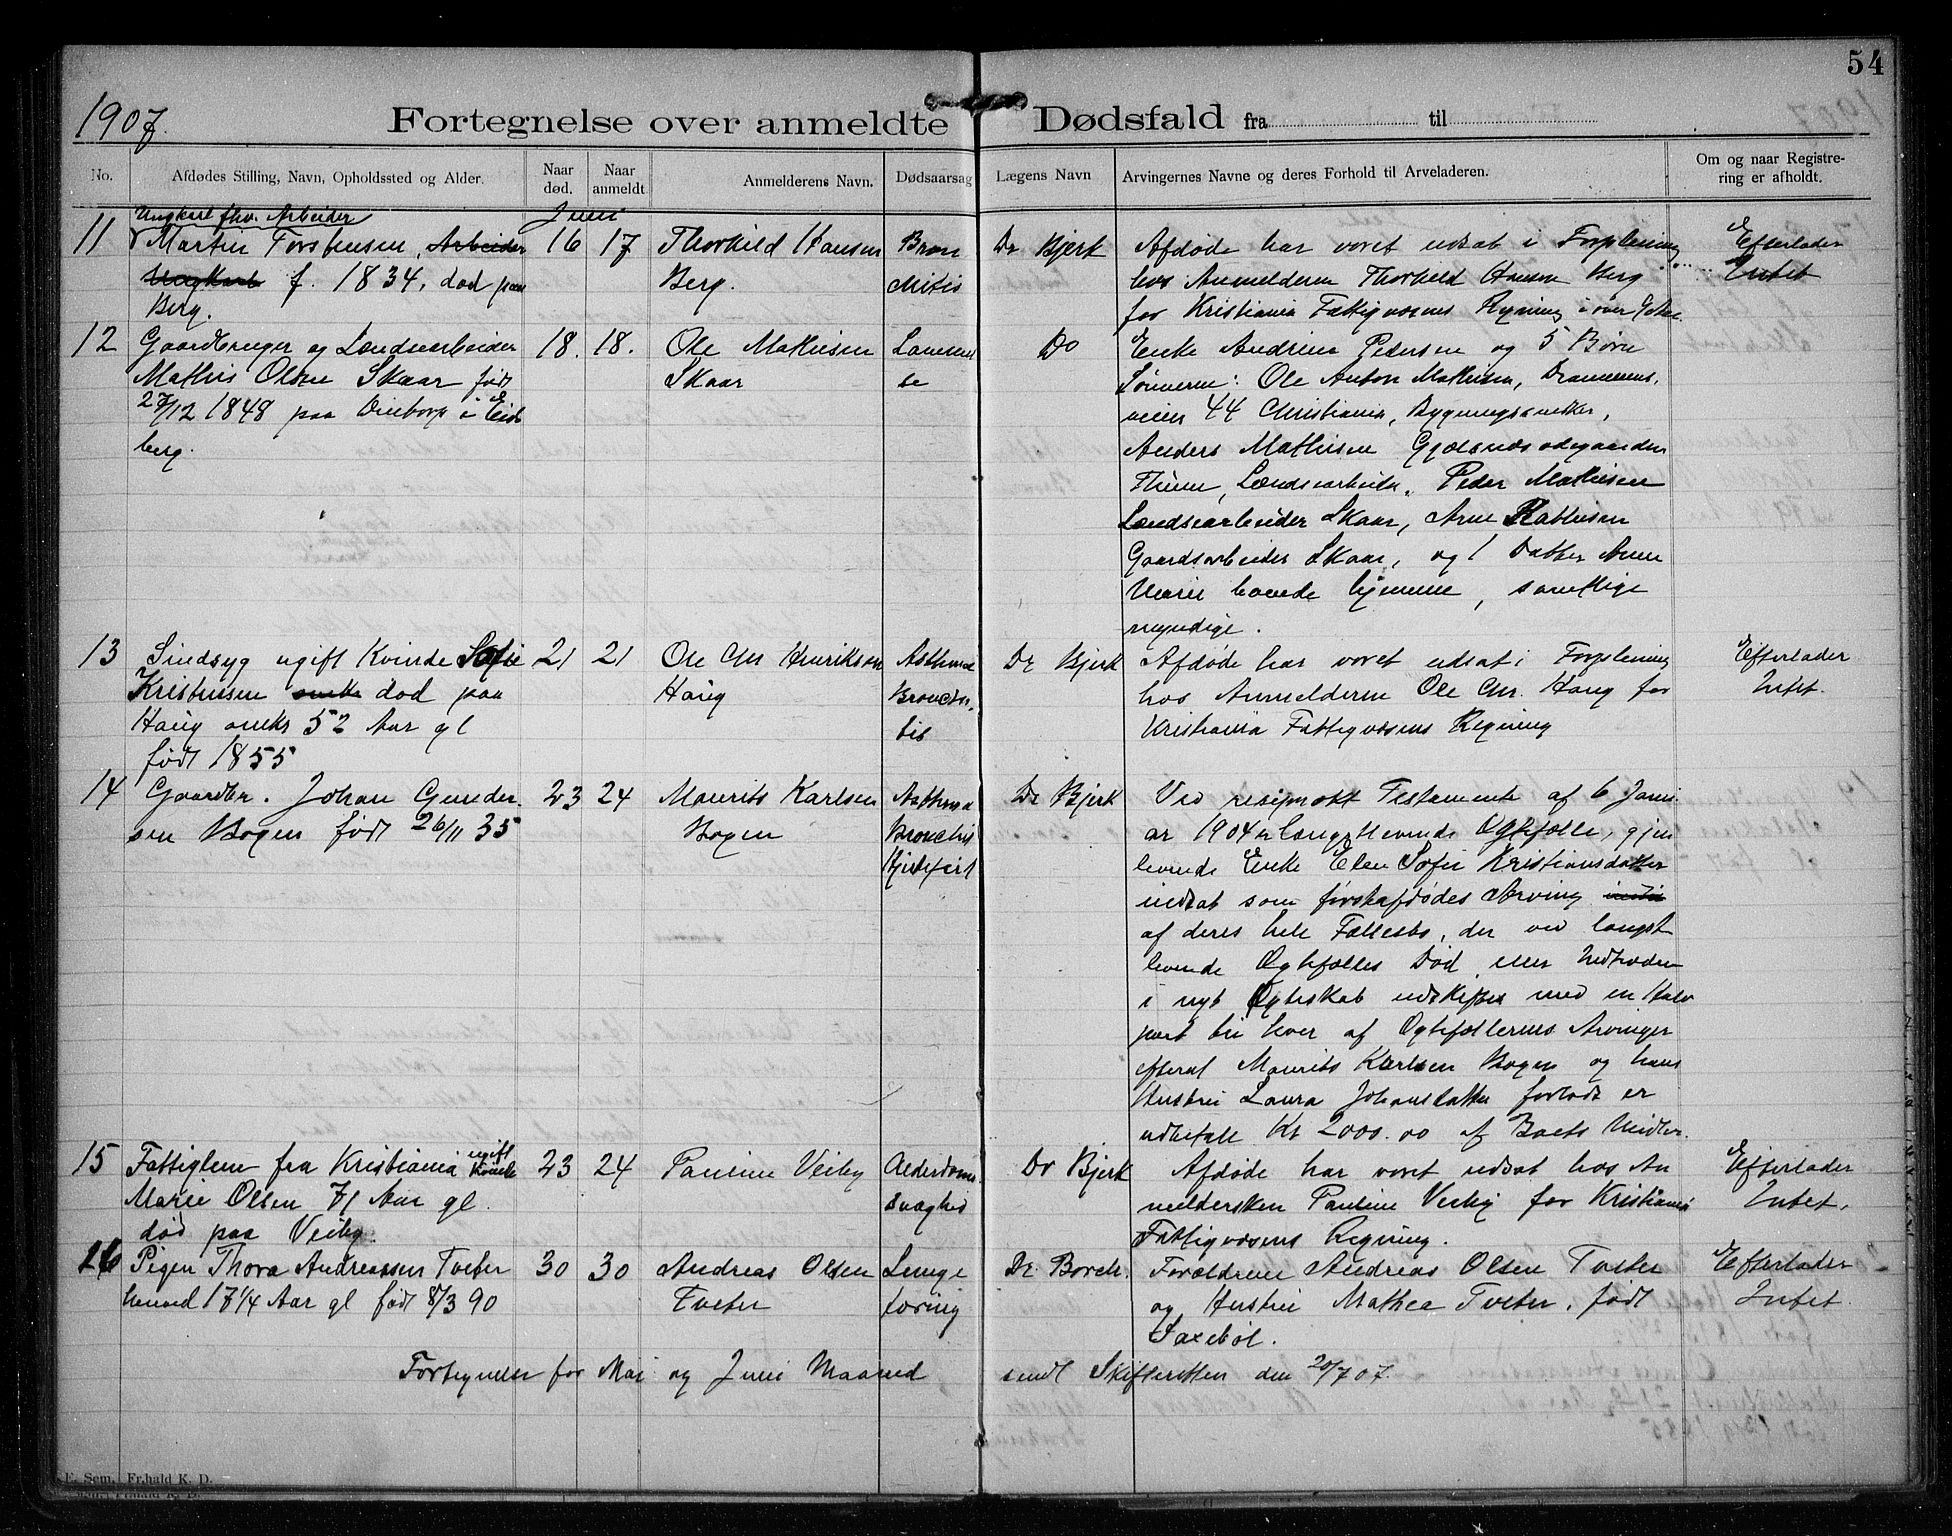 54
1907.
Fortegnelse over anmeldte Dødsfald fra til
No.
Afdødes Stilling, Navn, Opholdssted og Alder.
Naar død.
Naar anmeldt
Anmelderens Navn.
Dødsaarsag
Lægens Navn
Arvingernes Navne og deres Forhold til Arveladeren.
Om og naar Registre-
ring er afholdt.
Juni
11
Ungkarl fhv. Arbeider
Martin Torstensen, Arbeider
Ungkarl f. 1834, død paa
Berg.
16
17
Thorkild Hansen
Berg.
Bron
chitis
Dr Bjerk
Afdøde har været udsat i Forpleining
hos Anmelderen Thorkild Hansen Berg
for Kristiania Fattigvæsens Regning i over
Efterlader
Intet
12
Gaardbruger og Løndsearbeider
Mathis Olsen Skaar født
27/12 1848 paa i Eids
berg.
18.
18.
Ole Mathisen
Skaar
Lammel
se
Do
Enke Andrine Pedersen og 5 Børn
Sønnerne: Ole Anton Mathisen, Drammens
veien 44 Christiania, Bygningssnedker,
Anders Mathisen Gjølsnesødegaarden
Thune, Lændsearbeider, Peder Mathisen
Lændsearbeider Skaar, Arne Mathisen
Gaardsarbeider Skaar, og 1 Datter Anne
Marie boende hjemme, samtlige
myndige.
13
Sindsyg ugift Kvinde Sofie
Kristensen død paa
Haug omkr 52 Aar gl
født 1855
21
21
Ole Chr Henriksen
Haug
Asthma
Bronchi
tis
Dr Bjerk
Afdøde har været udsat i Forpleining
hos Anmelderen Ole Chr. Haug for
Kristiania Fattigvæsens Regning
Efterlader
Intet.
14
Gaardbr. Johan Gunder
sen Bogen født 26/11 35
23
24
Maurits Karlsen
Bogen
Asthma
Bronchit
Hjertefeil
Dr Bjerk
Ved resiprokt Testamente af 6 Janu
ar 1904 er længstlevende Ægtefælle, gjen
levende Enke Elen Sofie Kristiansdatter
indsat som førstafdødes Arving
af deres hele Fællesbo, der ved længst
levende Ægtefælles Død, eller Indtræden
i nyt Ægteskab udskiftes med en Halv
part til hver af Ægtefællernes Arvinger
efterat Maurits Karlsen Bogen og hans
Hustru Laura Johansdatter forlods er
udbetalt Kr 2000.00 af Boets Midler.
15
Fattiglem fra Kristiania ugift Kvinde
Marie Olsen 71 Aar gl.
død paa Veiby.
23
24
Pauline Veiby
Alderdoms
svaghed
Dr Bjerk
Afdøde har været udsat hos An
meldersken Pauline Veiby for Kristiania
Fattigvæsens Regning.
Efterlader
Intet.
16
Pigen Thora Andreassen Tveter
henved 17 1/4 Aar gl født 8/3 90
30
30
Andreas Olsen
Tveter
Lunge
tæring
Dr Borch.
Forældrene Andreas Olsen Tveter
og Hustru Mathea Tveter, født
Saxebøl.
Efterlader
Intet.
Fortegnelse for Mai og Juni Maaned sendt Skifteretten den 20/7 07.
E. Sem, Fr.hald K. D.